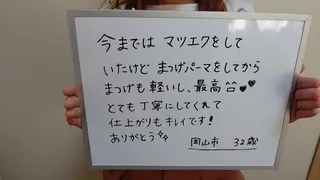 今までは マツエクをして
いたけど まつげパーマをしてから
まつげも軽いし、最高
とても丁寧にしてくれて
仕上がりもキレイです!
ありがとう
岡山市 32歳